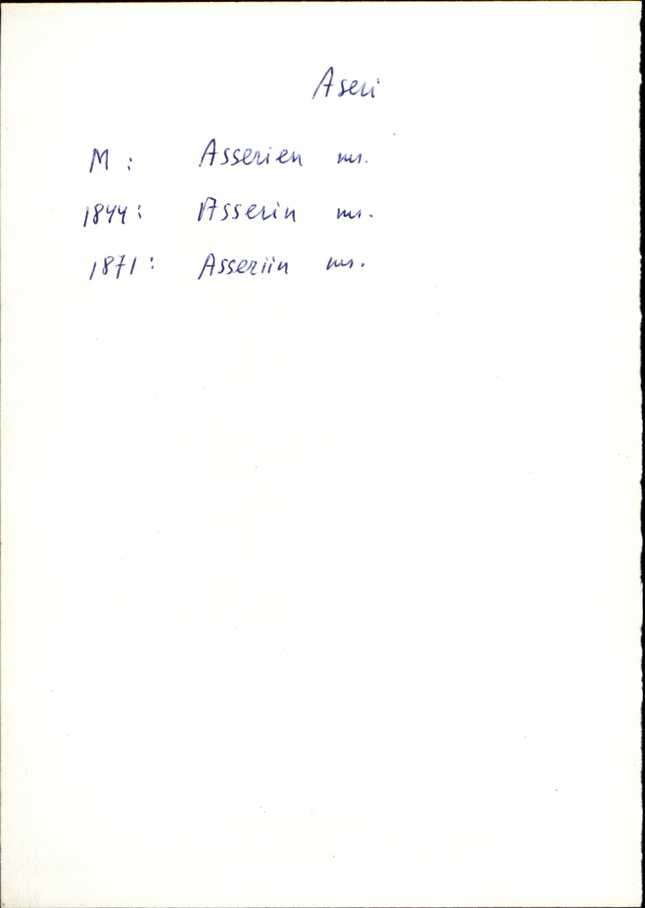 Aseri
M : Asserien ms.
1844 : Asserin ms.
1871 : Asseriin ms.